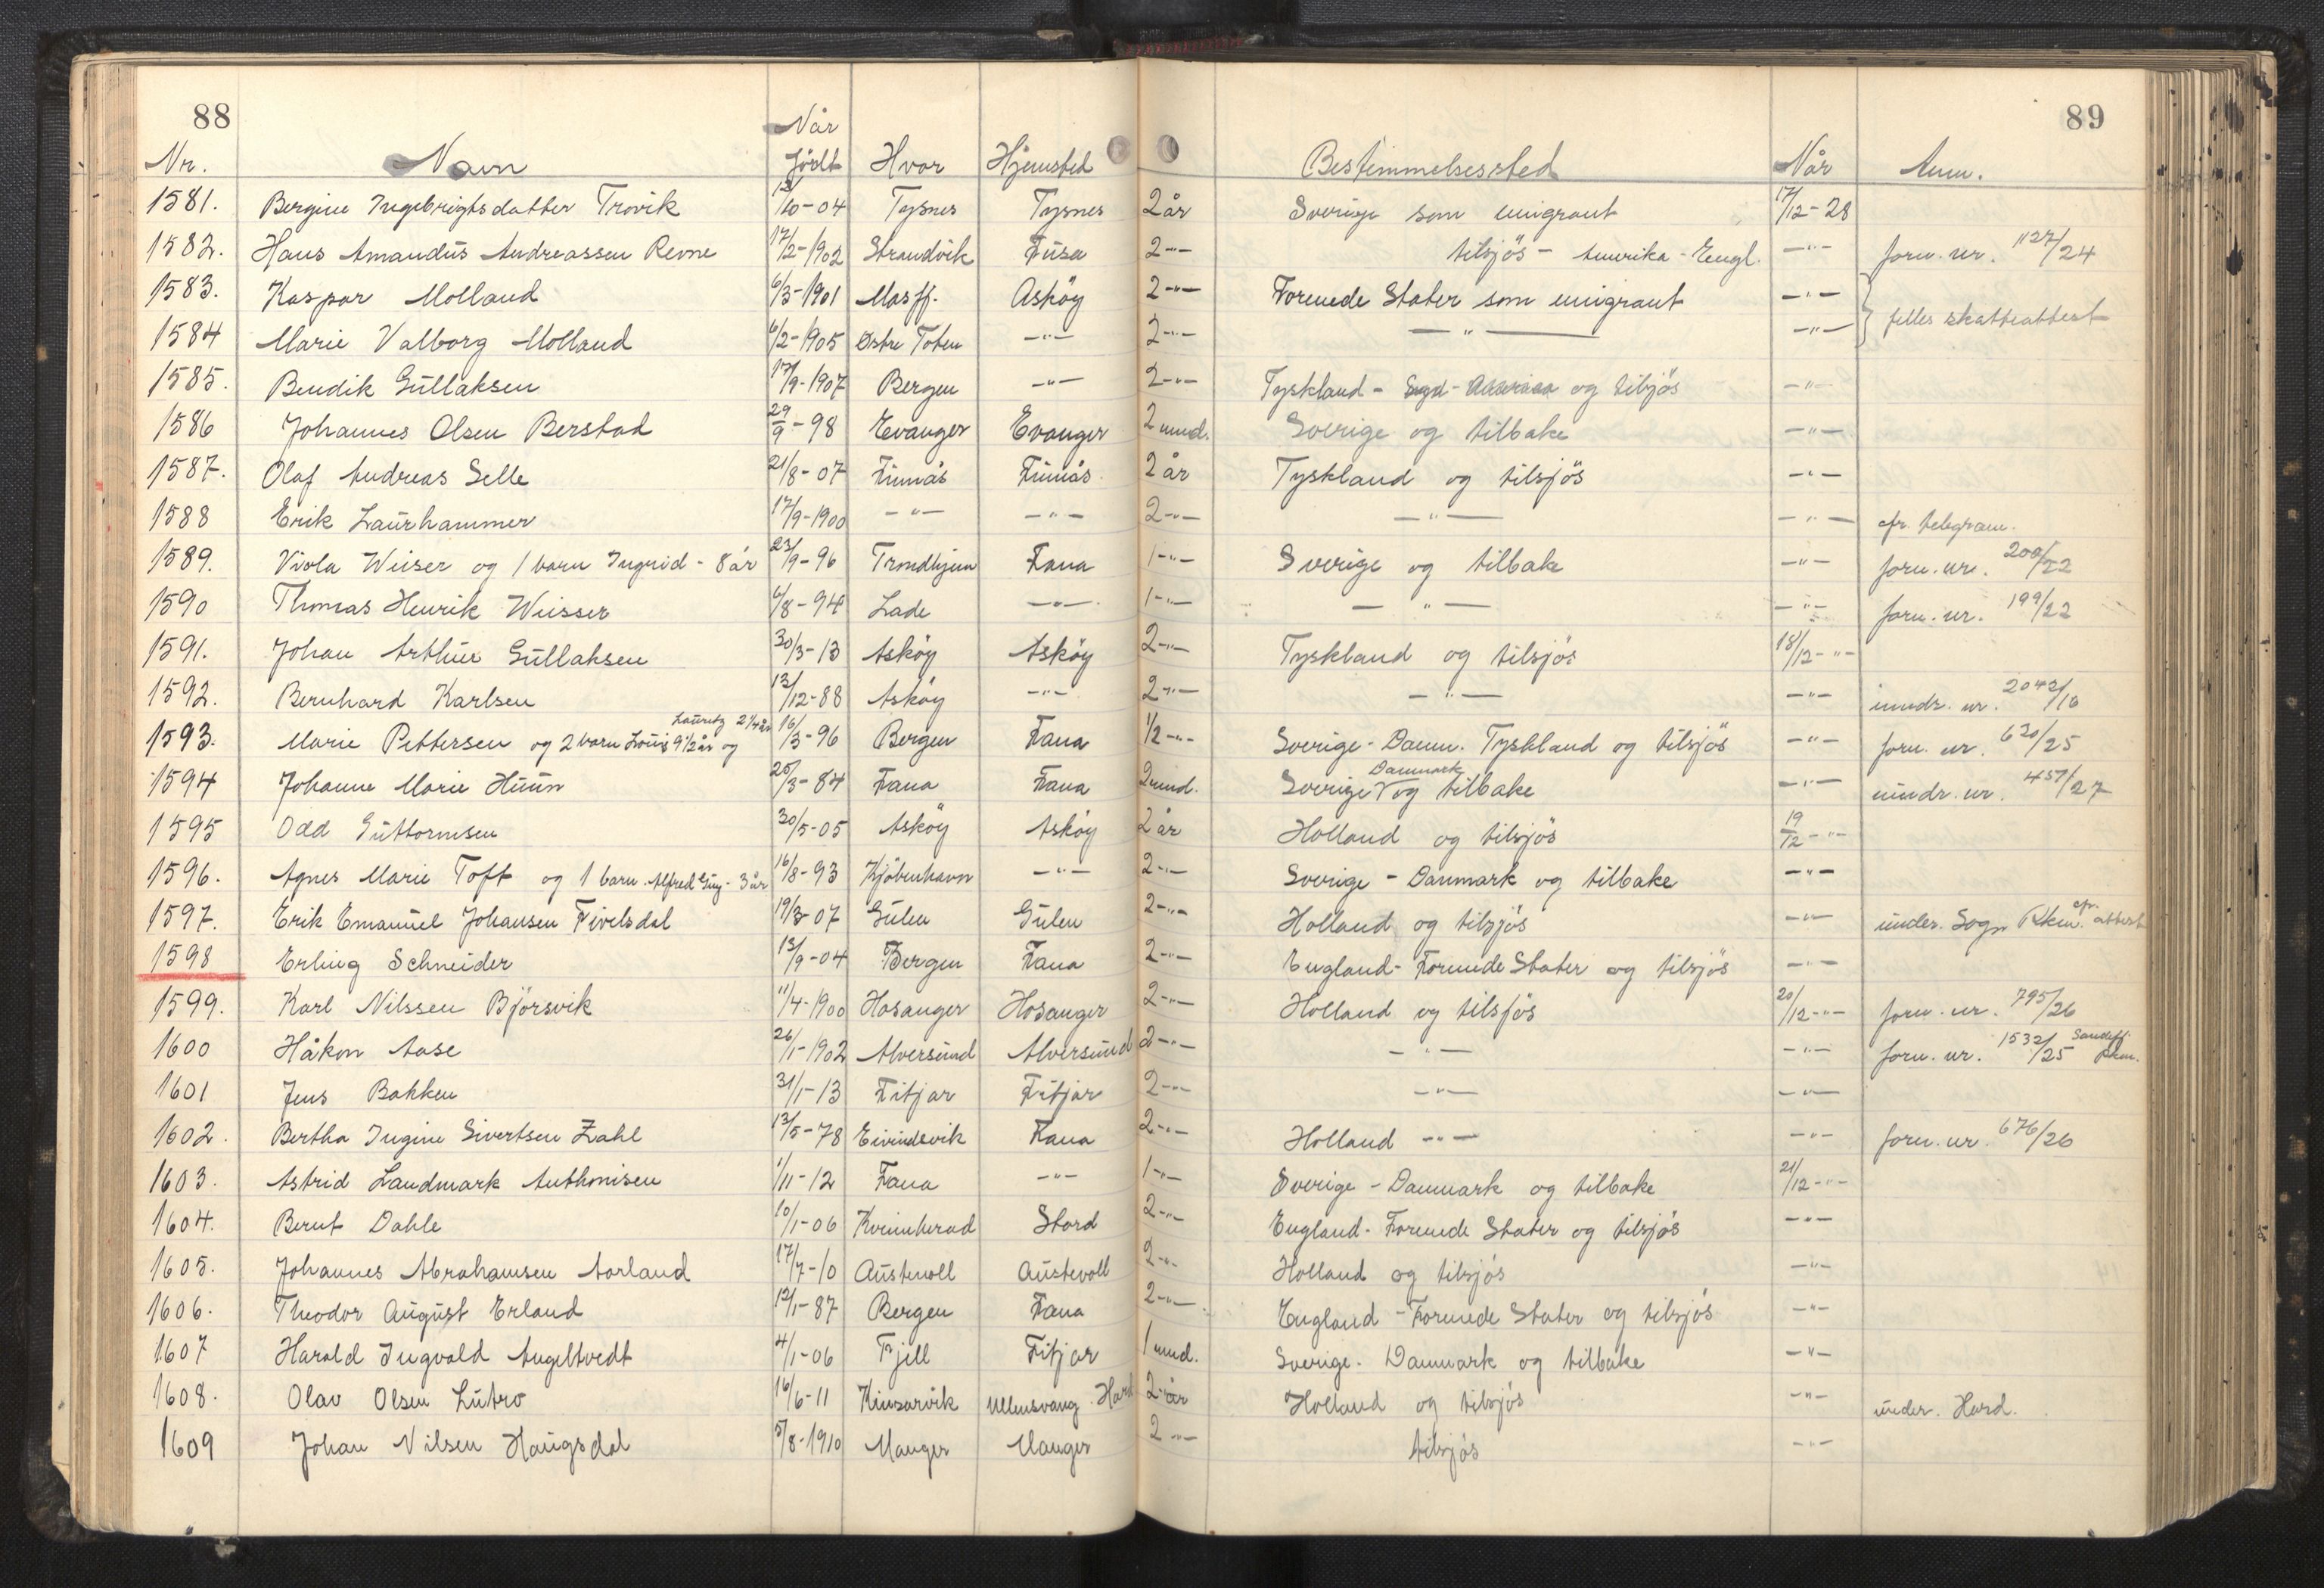 88 89
Når
Nr. Navn Født Hvor Hjemsted Bestemmelsessted Når Anm.
1581. Bergine Ingebrigtsdatter Trovik /10-04 Tysnes Tysnes 2 år Sverige som emigrant 17/12-28
1582. Hans Amandus Andreassen Revne 17/2-1902 Strandvik Fusa 2-"- tilsjös - Amerika - Engl. -"- forn. nr. 1127/24
1583. Kaspar Molland 6/3-1901 Masfj. Asköy 2-"- Forenede Stater som emigrant -"-
1584 Marie Valborg Molland 6/2-1905 Östre Toten -"- 2-"- -"- -"- } felles skatteattest
1585. Bendik Gullaksen 17/9-1907 Bergen -"- 2-"- Tyskland - og tilsjös -"-
1586 Johannes Olsen Berstad 29/9-98 Evanger Evanger 2 mnd. Sverige og tilbake -"-
1587. Olaf Andreas Selle 21/8-07 Finnås Finnås 2 år Tyskland og tilsjös -"-
1588 Erik Laurhammer 17/9-1900 -"- -"- 2-"- -"- -"- cfr. telegram.
1589. Viola Wiiser og 1 barn Ingrid - 8 år 23/9-96 Trondhjem Fana 1-"- Sverige og tilbake -"- forn. nr. 200/22
1590 Thomas Henrik Wiisser 6/8-94 Lade -"- 1-"- -"- -"- forn. nr. 199/22
1591. Johan Arthur Gullaksen 30/3-13 Asköy Asköy 2-"- Tyskland og tilsjös 18/12-"-
1592. Bernhard Karlsen 13/12-88 Asköy -"- 2-"- -"- -"- nr. 2042/16
Lauritz 2 1/4 år
1593. Marie Pettersen og 2 barn Louis 9 1/2 år og 16/3-96 Bergen Fana 1/2-"- Sverige - Danm. Tyskland og tilsjös -"- forn. nr. 620/25
Danmark
1594 Johanne Marie Huun 25/3-84 Fana Fana 2 mnd. Sverige V og tilbake -"- nr. 457/27
1595 Odd Guttormsen 30/5-05 Asköy Asköy 2 år Holland og tilsjös 19/12-"-
1596. Agnes Marie Toft og 1 barn Alfred - 3 år 16/8-93 Kjöbenhavn -"- 2-"- Sverige - Danmark og tilbake -"-
1597. Erik Emanuel Johansen Fivelsdal 19/3-07 Gulen Gulen 2-"- Holland og tilsjös -"- under. Sogn Rkm. cfr. attest
1598 Erling Schneider 13/9-04 Bergen Fana 2-"- England - Forenede Stater og tilsjös -"-
1599. Karl Nilssen Björsvik 11/4-1900 Hosanger Hosanger 2-"- Holland og tilsjös 20/12-"- forn. nr. 795/26
1600 Håkon Aase 26/1-1902 Alversund Alversund 2-"- -"- -"- forn. nr. 1532/25 Sandefj. Pkm.
1601 Jens Bakken 31/1-13 Fitjar Fitjar 2-"- -"- -"-
1602. Bertha Ingine Sivertsen Zahl 13/5-78 Eivindsvik Fana 2-"- Holland -"- -"- forn. nr. 676/26
1603. Astrid Landmark Anthonisen 1/11-12 Fana -"- 1-"- Sverige - Danmark og tilbake 21/12-"-
1604. Bernt Dahle 10/1-06 Kvinnherad Stord 2-"- England - Forenede Stater og tilsjös -"-
1605. Johannes Abrahamsen Aorland 17/7-10 Austevoll Austevoll 2-"- Holland og tilsjös -"-
1606. Theodor August Erland 12/1-87 Bergen Fana 2-"- England - Forenede Stater og tilsjös -"-
1607 Harald Ingvald Angeltvedt 4/1-06 Fjell Fitjar 1 mnd. Sverige - Danmark og tilbake -"-
1608. Olav Olsen Lutro 16/6-11 Kinsarvik Ullensvang Hard 2 år Holland og tilsjös -"- under. Hard.
1609 Johan Nilsen Haugsdal 5/8-1910 Manger Manger 2-"- tilsjös -"-